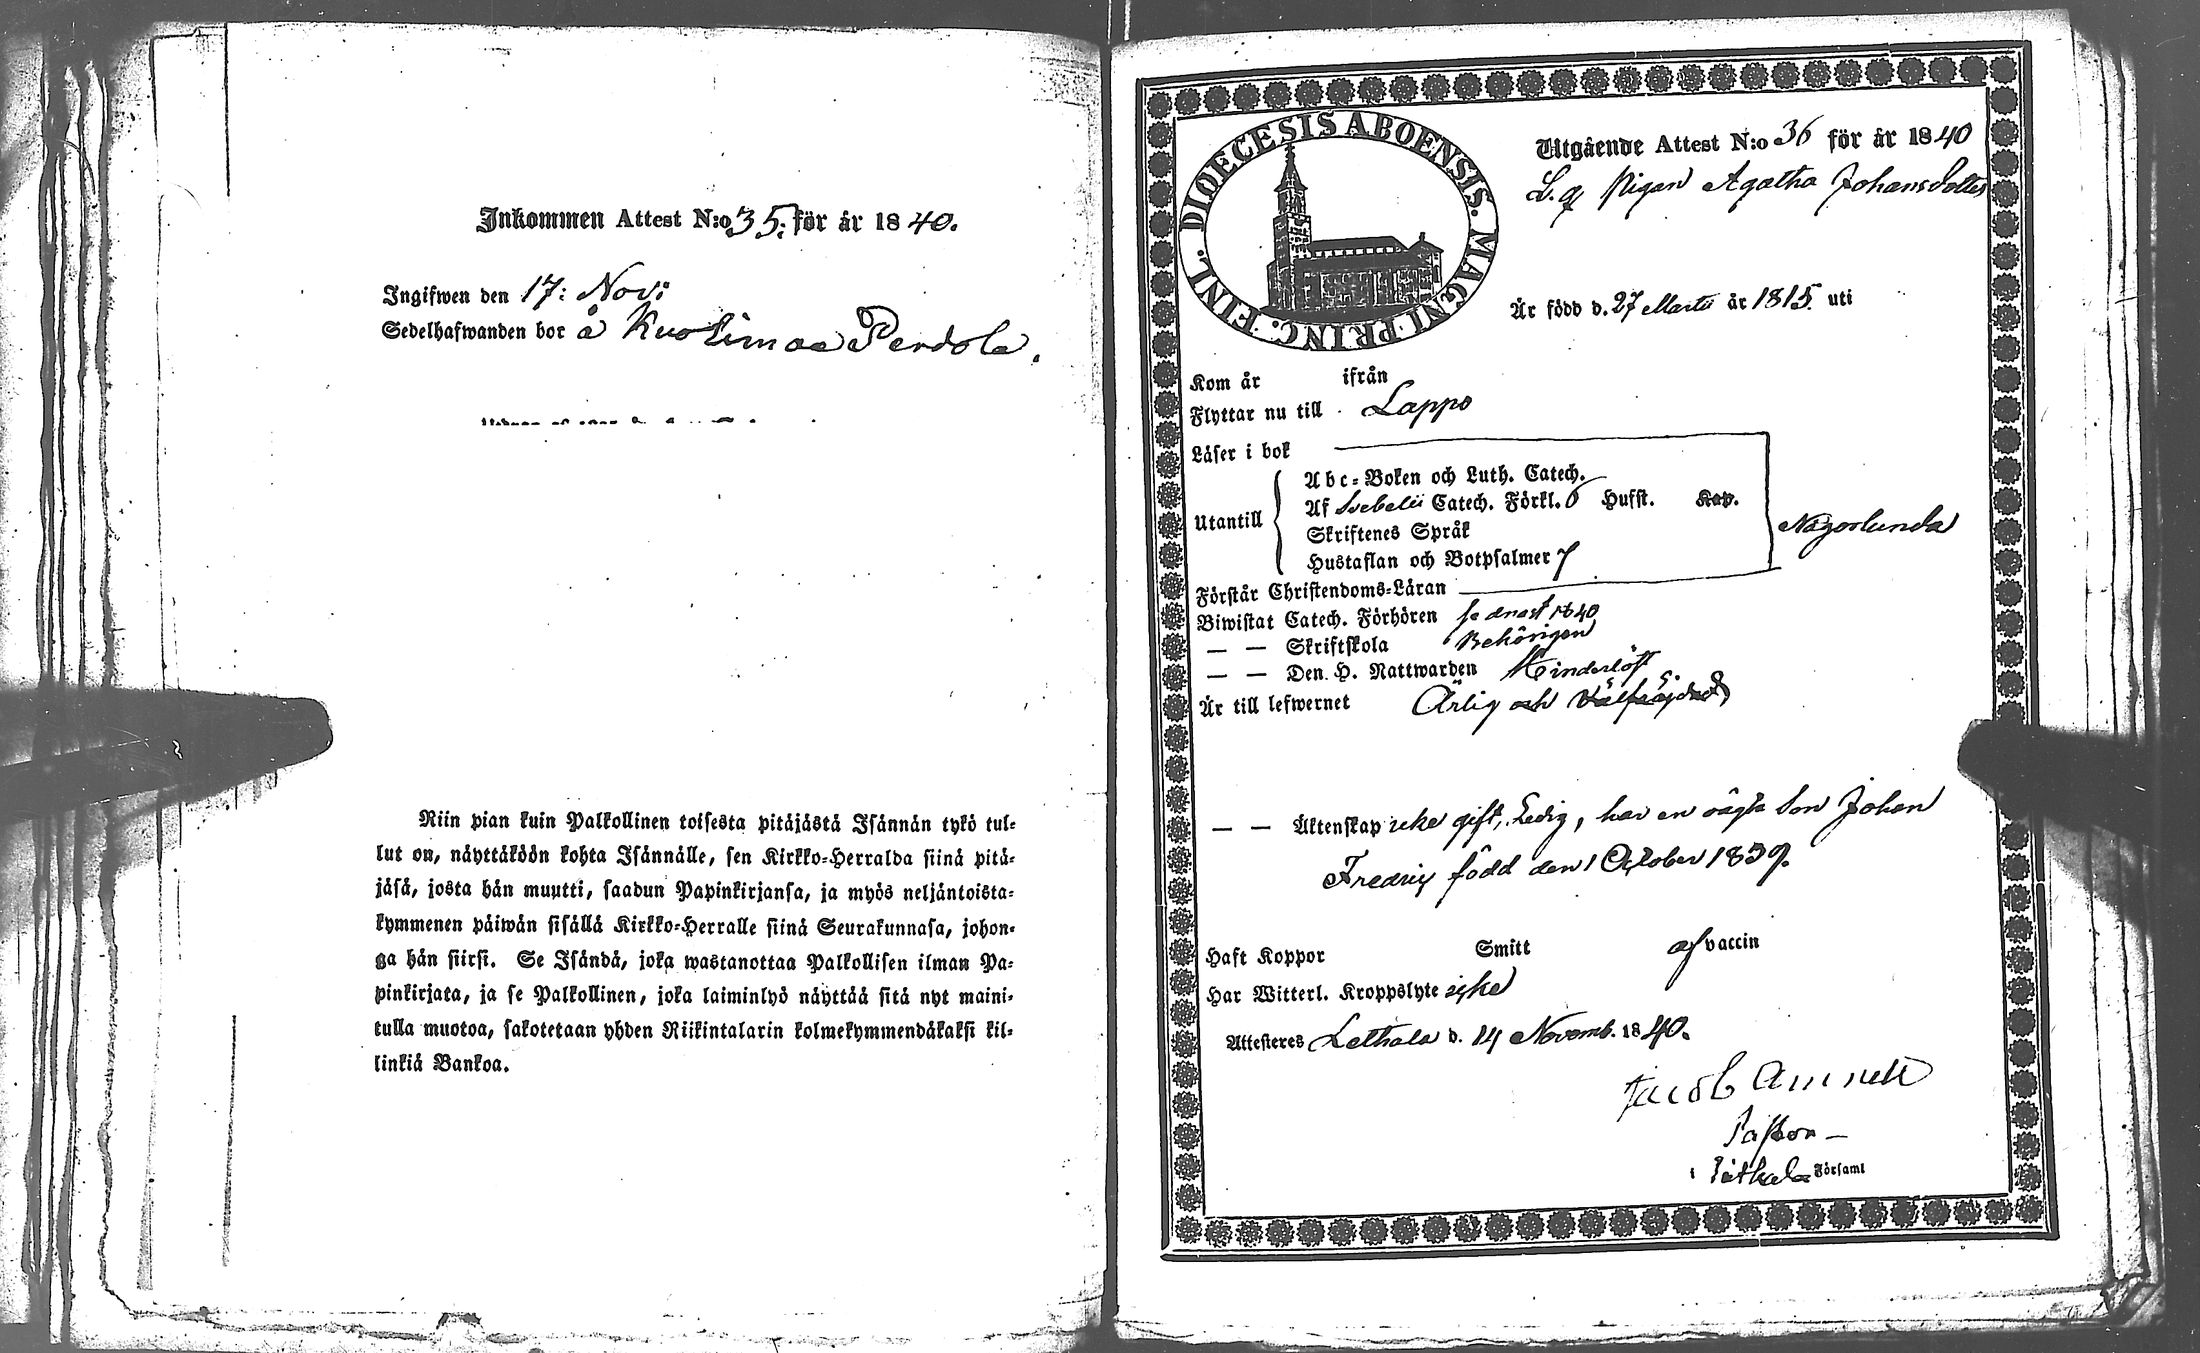 Inkommen Attest N:o 35: för år 1840.
Ingifwen den 17: Nov:
Sedelhafwanden bor å Kuolimaa Perdola.
Niin pian kuin Palkollinen toisesta pitäjästä Isännän tykö tul-
lut on, näyttäköön kohta Isännälle, sen Kirkko-Herralda siinä pitä-
jäsä, josta hän muutti, saadun Papinkirjansa, ja myös neljäntoista-
kymmenen päiwän sisällä Kirkko-Herralle siinä Seurakunnasa, johon-
ga hän siirsi. Se Isändä, joka wastanottaa Palkollisen ilman Pa-
pinkirjata, ja se Palkollinen, joka laiminlyö näyttää sitä nyt maini-
tulla muotoa, sakotetaan yhden Riikintalarin kolmekymmendäkaksi kil-
linkiä Bankoa.
DIOECESIS ABOENSIS. MAGNI PRINC. FINL.
Utgående Attest N:o 36 för år 1840
Pigan Agatha Johansdotter
Är född d. 27 Martii år 1815. uti
Kom år ifrån
Flyttar nu till Lappo
Läser i bok
Utantill
Abc-Boken och Luth. Catech.
Af Svebelii Catech. Förkl. 6 Hufst. Kap.
Skriftenes Språk
Hustaflan och Botpsalmer 7
Någorlunda
Förstår Christendoms-Läran
Biwistat Catech. Förhören sednast 1840
— — Skriftskola Behörigen
— — Den H. Nattwarden Hinderlöst
Är till lefwernet Ärlig och Välfräjdad
— — Äktenskap icke gift, Ledig, har en oägta Son Johan
Fredric född den 1 October 1839.
Haft Koppor Smitt af vaccin
Har Witterl. Kroppslyte icke
Attesteres Lethala d. 14 Novemb. 1840.
Jacob Amnell
Pastor —
i Lethala Församl